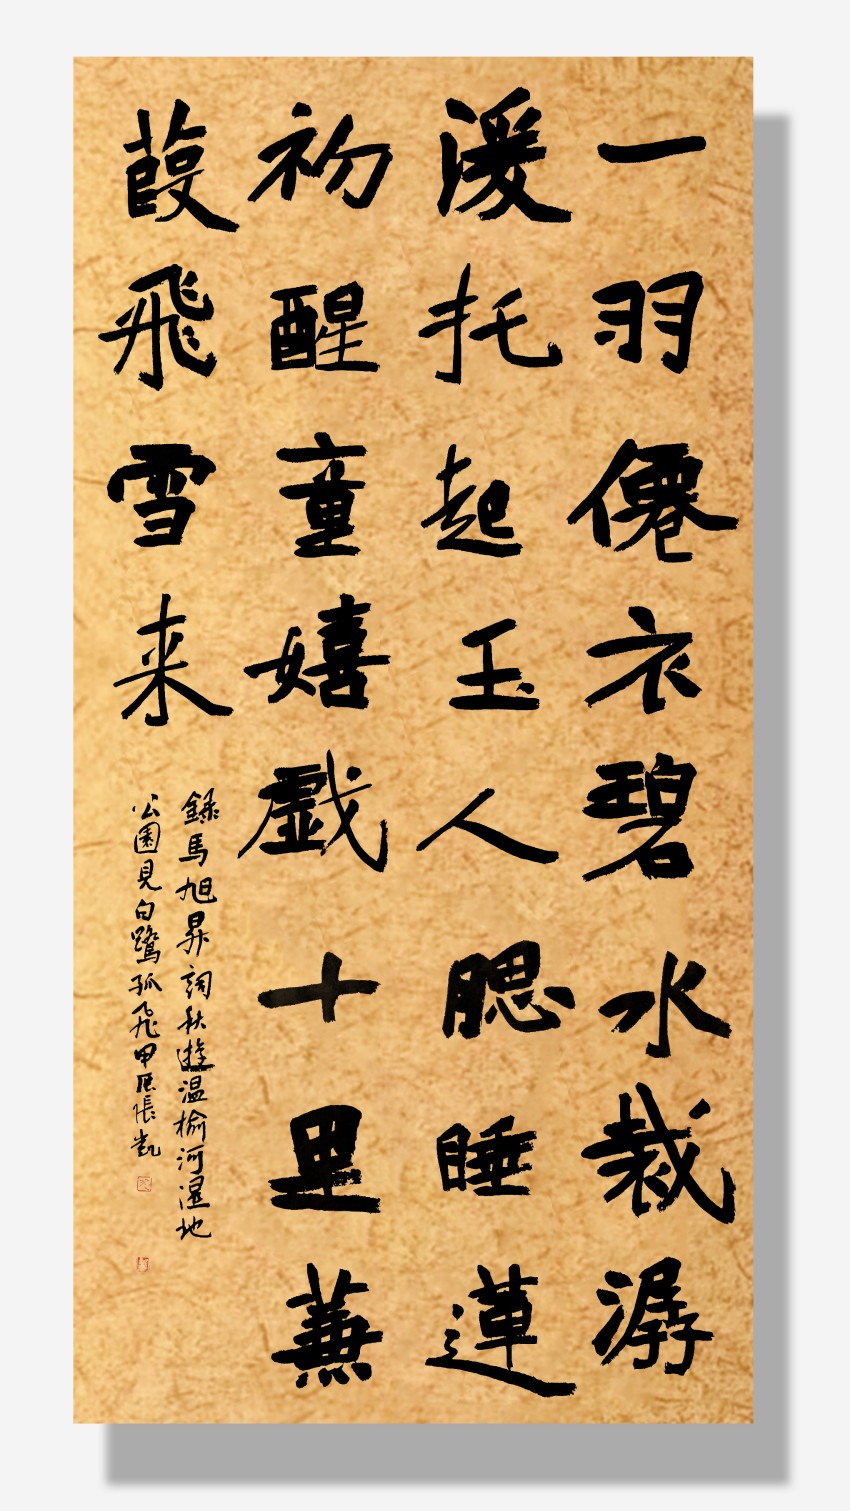 一羽僊衣碧水裁潺
湲托起玉人腮睡蓮
初醒童嬉戯十里蒹
葭飛雪来
録馬旭昇詞秋遊温榆河湿地
公園見白鷺孤飛甲辰張凱